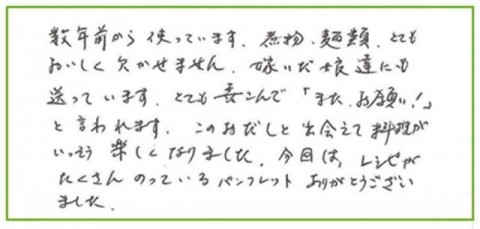 数年前から使っています。煮物、麺類、とても
おいしく欠かせません。嫁いだ娘達にも
送っています。とても喜こんで「また、お願い!」
と言われます。このおだしと出会えて料理が
いっそう楽しくなりました。今回は、レシピが
たくさんのっているパンフレットありがとうござい
ました。